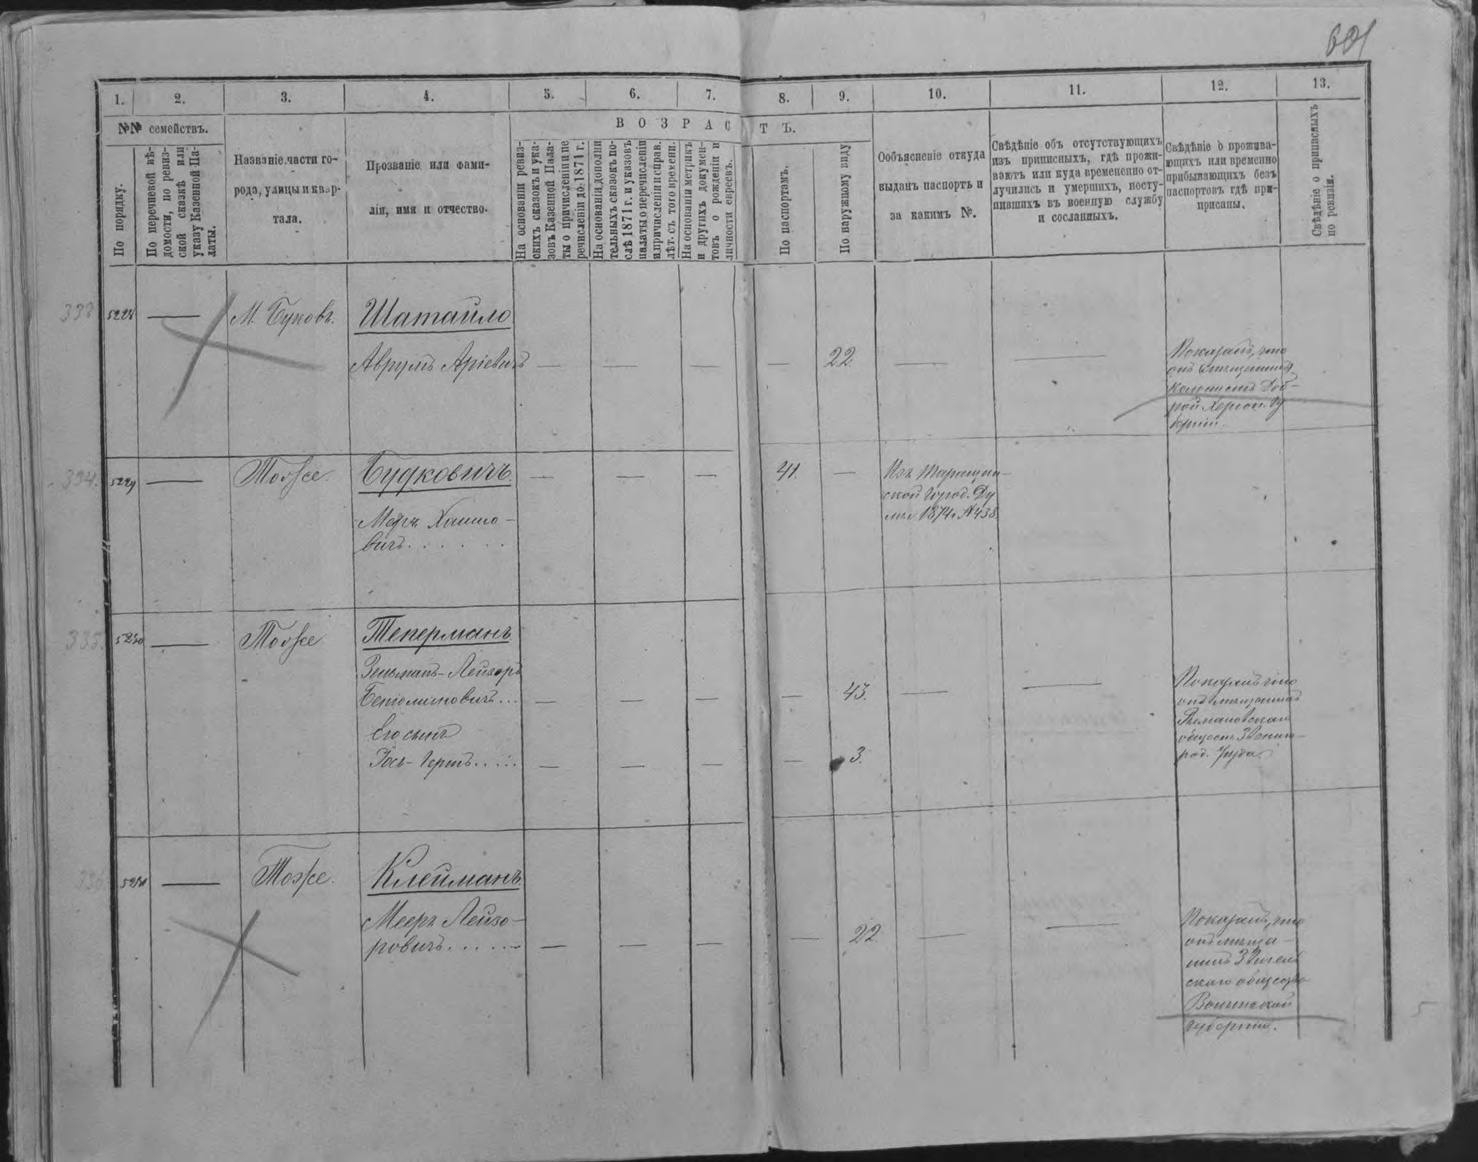 601
1. 2. 3. 4. 5. 6. 7. 8. 9. 10. 11. 12. 13.
№№ семействъ.
По порядку.
По перечневой вѣ-
домости, по ревиз-
ской сказкѣ или
указу Казенной Па-
латы.
Названіе части го-
рода, улицы и квар-
тала.
Прозваніе или фами-
лія, имя и отчество.
ВОЗРАСТЪ.
На основаніи ревиз-
скихъ сказокъ и ука-
зовъ Казенной Пала-
ты о причисленіи и пе
речисленіи до 1871 г.
На основаніи дополни
тельныхъ сказокъ по-
слѣ 1871 г. и указовъ
палаты о перечисленіи
и причисленіи и справ.
лѣт. съ того времени.
На основаніи метрикъ
и другихъ докумен-
товъ о рожденіи и
личности евреевъ.
По паспортамъ.
По наружному виду
Ообъясненіе откуда
выданъ паспортъ и
за какимъ №.
Свѣдѣніе объ отсутствующихъ
изъ приписныхъ, гдѣ прожи-
ваютъ или куда временно от-
лучились и умершихъ, посту-
пившихъ въ военную службу
и сосланныхъ.
Свѣдѣніе о прожива-
ющихъ или временно
прибывающихъ безъ
паспортовъ гдѣ при-
писаны.
Свѣдѣніе о приписныхъ
по ревизіи.
333 5228 — М. Буковъ. Шатайло
Аврумъ Аріевичъ — — — — 22 — —
Показалъ, что
онъ
колонистъ Доб-
рой Херсон. Гу
берніи.
334. 5229 — Тоже Будковичъ.
Меръ Хаимо-
вичъ. . . . . .
— — — 41. —
Изъ Таращан-
ской Город. Ду
мы 1874 №438
335 5230 — Тоже Теперманъ
Зельманъ-Лейзоръ
Бенюминовичъ... — — — — 43. — —
Его сынъ
Іось-Герш..... — — — — 3.
Показалъ что
онъ мѣщанинъ
Романовскаго
обществ. Звениго-
род. Уѣзда
336 5231 — Тоже. Клейманъ
Мееръ Лейзо-
ровичъ..... — — — — 22 — —
Показалъ, что
онъ мѣща-
нинъ
скаго общества
Волынской
губерніи.